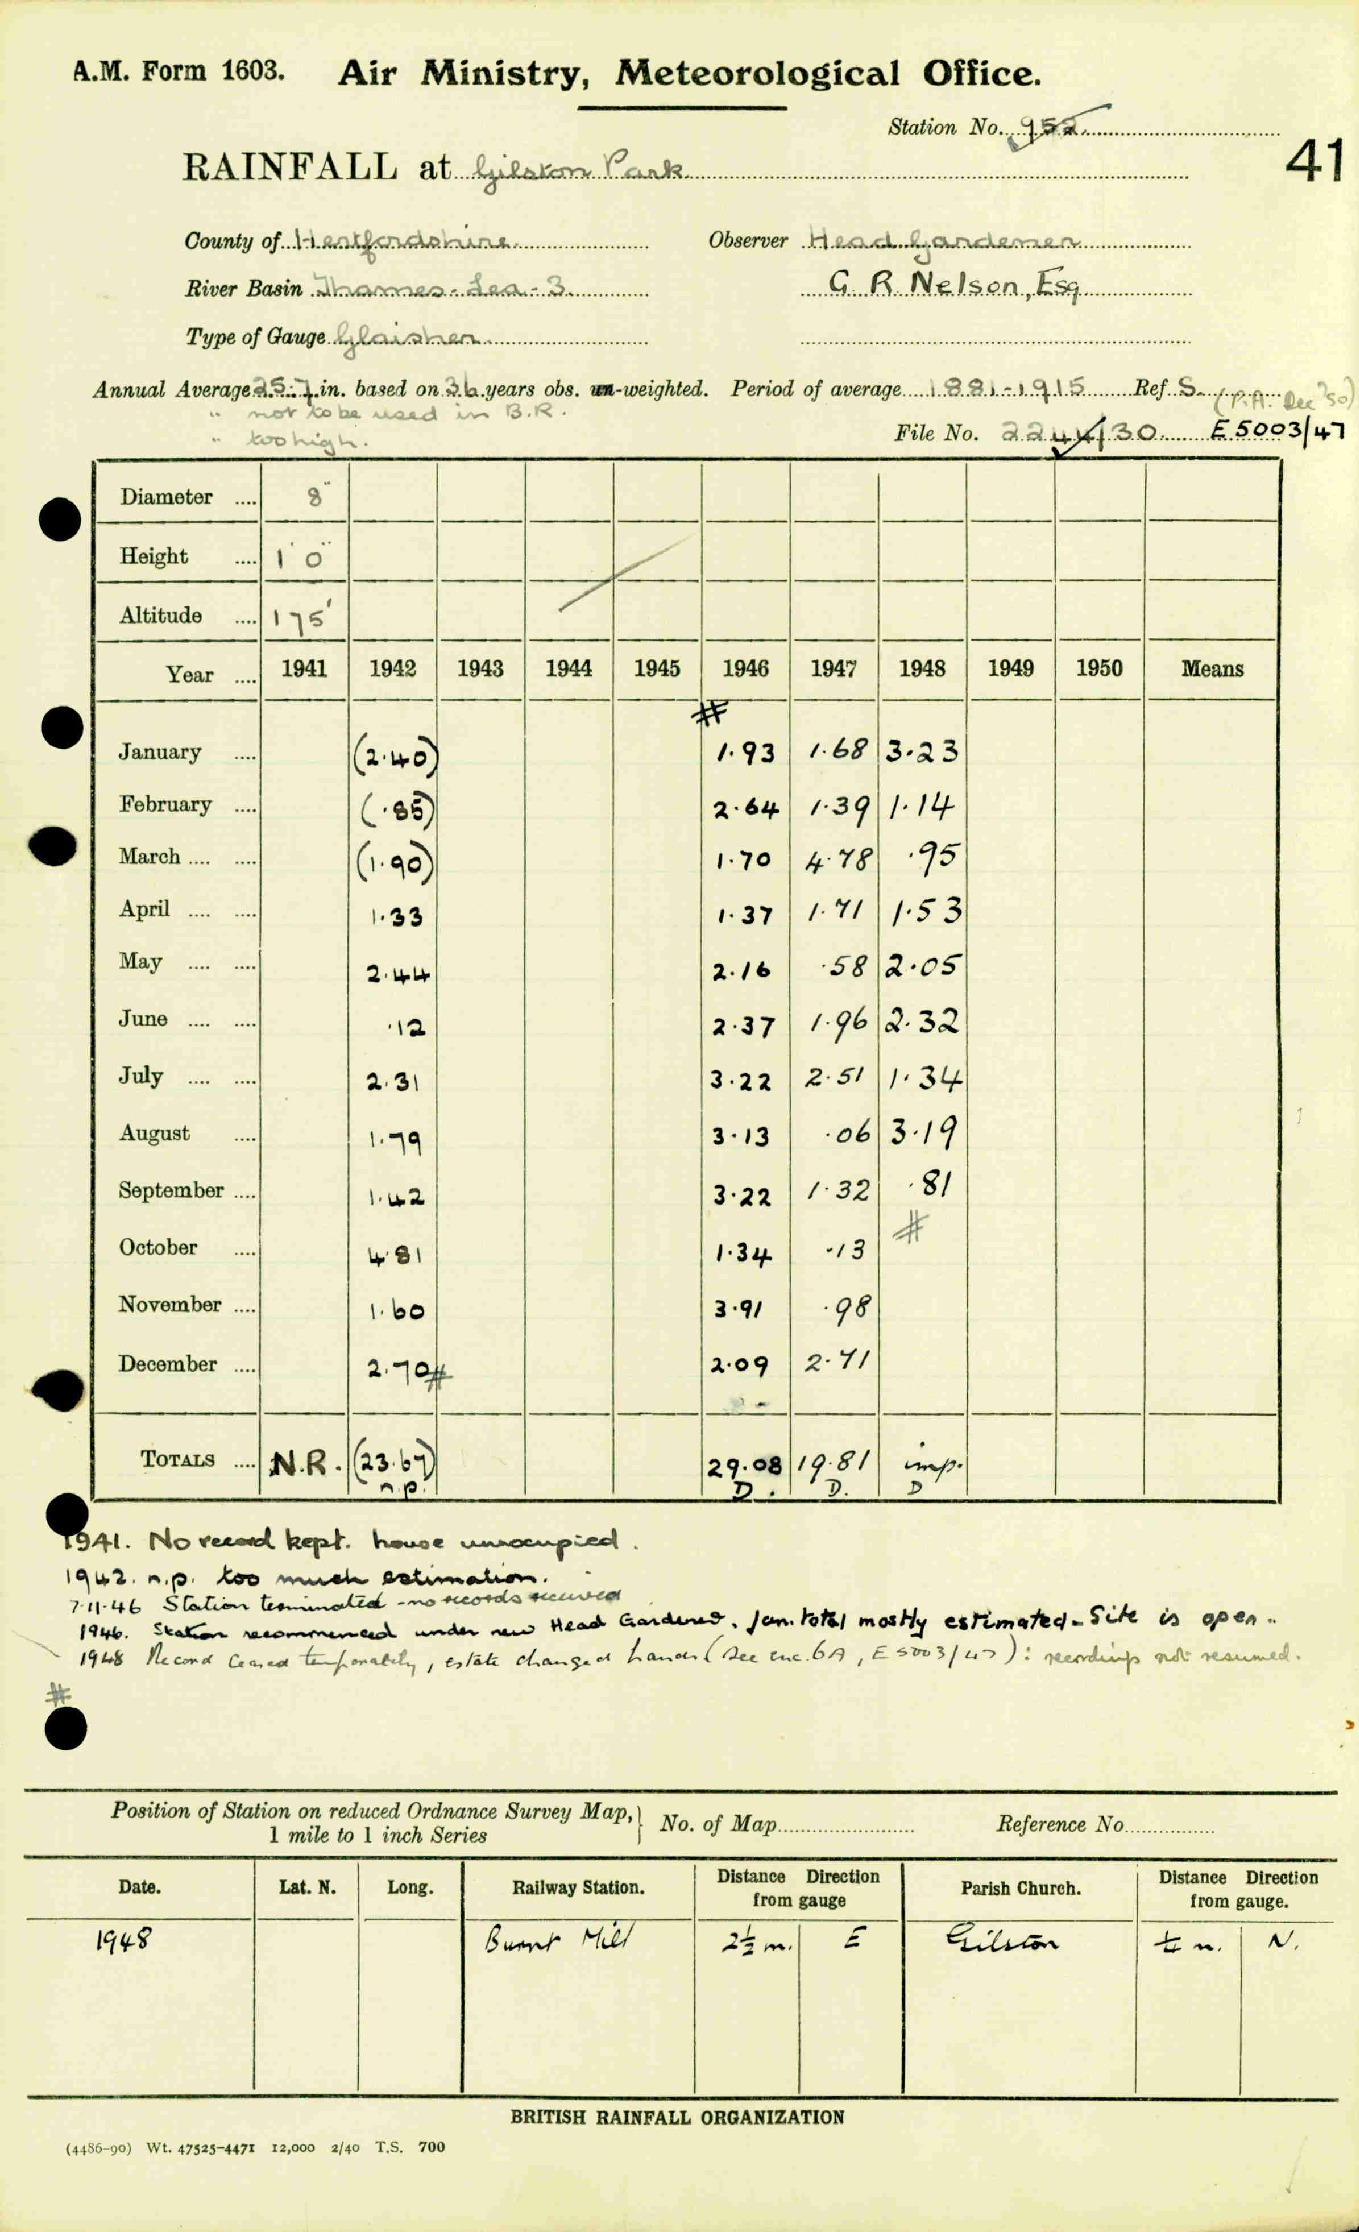 A.M. Form 1603. Air Ministry, Meteorological Office.
Station No. 952
41
RAINFALL at Gilston Park
County of Hertfordshire Observer Head Gardener
River Basin Thames-Lea-3 G R Nelson, Esq
Type of Gauge Glaisher
Annual Average 25.7 in. based on 36 years obs. un-weighted. Period of average 1881-1915 Ref S. (P.A. Dec '50)
" not to be used in B.R.
" too high. File No. 2244/30 E5003/47
Diameter .... 8"
Height .... 1' 0"
Altitude .... 175'
Year .... 1941 1942 1943 1944 1945 1946 1947 1948 1949 1950 Means
#
January .... (2.40) 1.93 1.68 3.23
February .... (.85) 2.64 1.39 1.14
March .... .... (1.90) 1.70 4.78 .95
April .... .... 1.33 1.37 1.71 1.53
May .... .... 2.44 2.16 .58 2.05
June .... .... .12 2.37 1.96 2.32
July .... .... 2.31 3.22 2.51 1.34
August .... 1.79 3.13 .06 3.19
September .... 1.42 3.22 1.32 .81
October .... 4.81 1.34 .13 #
November .... 1.60 3.91 .98
December .... 2.70# 2.09 2.71
TOTALS .... N.R. (23.67) 29.08 19.81 imp.
n.p. D. D. D
1941. No record kept. house unoccupied.
1942. n.p. too much estimation.
7-11-46 Station terminated - no records received
1946. Station recommenced under new Head Gardener. Jan. total mostly estimated - Site is open.
1948 Record ceased temporarily, estate changed hands (see enc. 6A, E5003/47): recordings not resumed.
#
Position of Station on reduced Ordnance Survey Map, } No. of Map Reference No.
1 mile to 1 inch Series
Date. Lat. N. Long. Railway Station. Distance Direction from gauge Parish Church. Distance Direction from gauge.
1948 Burnt Mill 2½ m. E Gilston ¼ m. N.
BRITISH RAINFALL ORGANIZATION
(4486-90) Wt. 47525-4471 12,000 2/40 T.S. 700